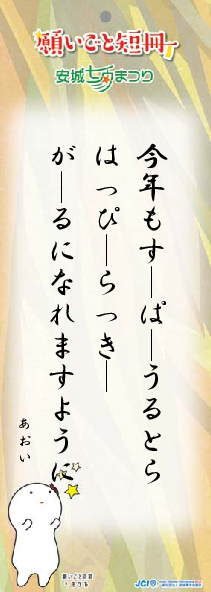 願いごと短冊
安城七夕まつり
今年もすーぱーうるとら
はっぴーらっきー
がーるになれますように
あおい
JCI